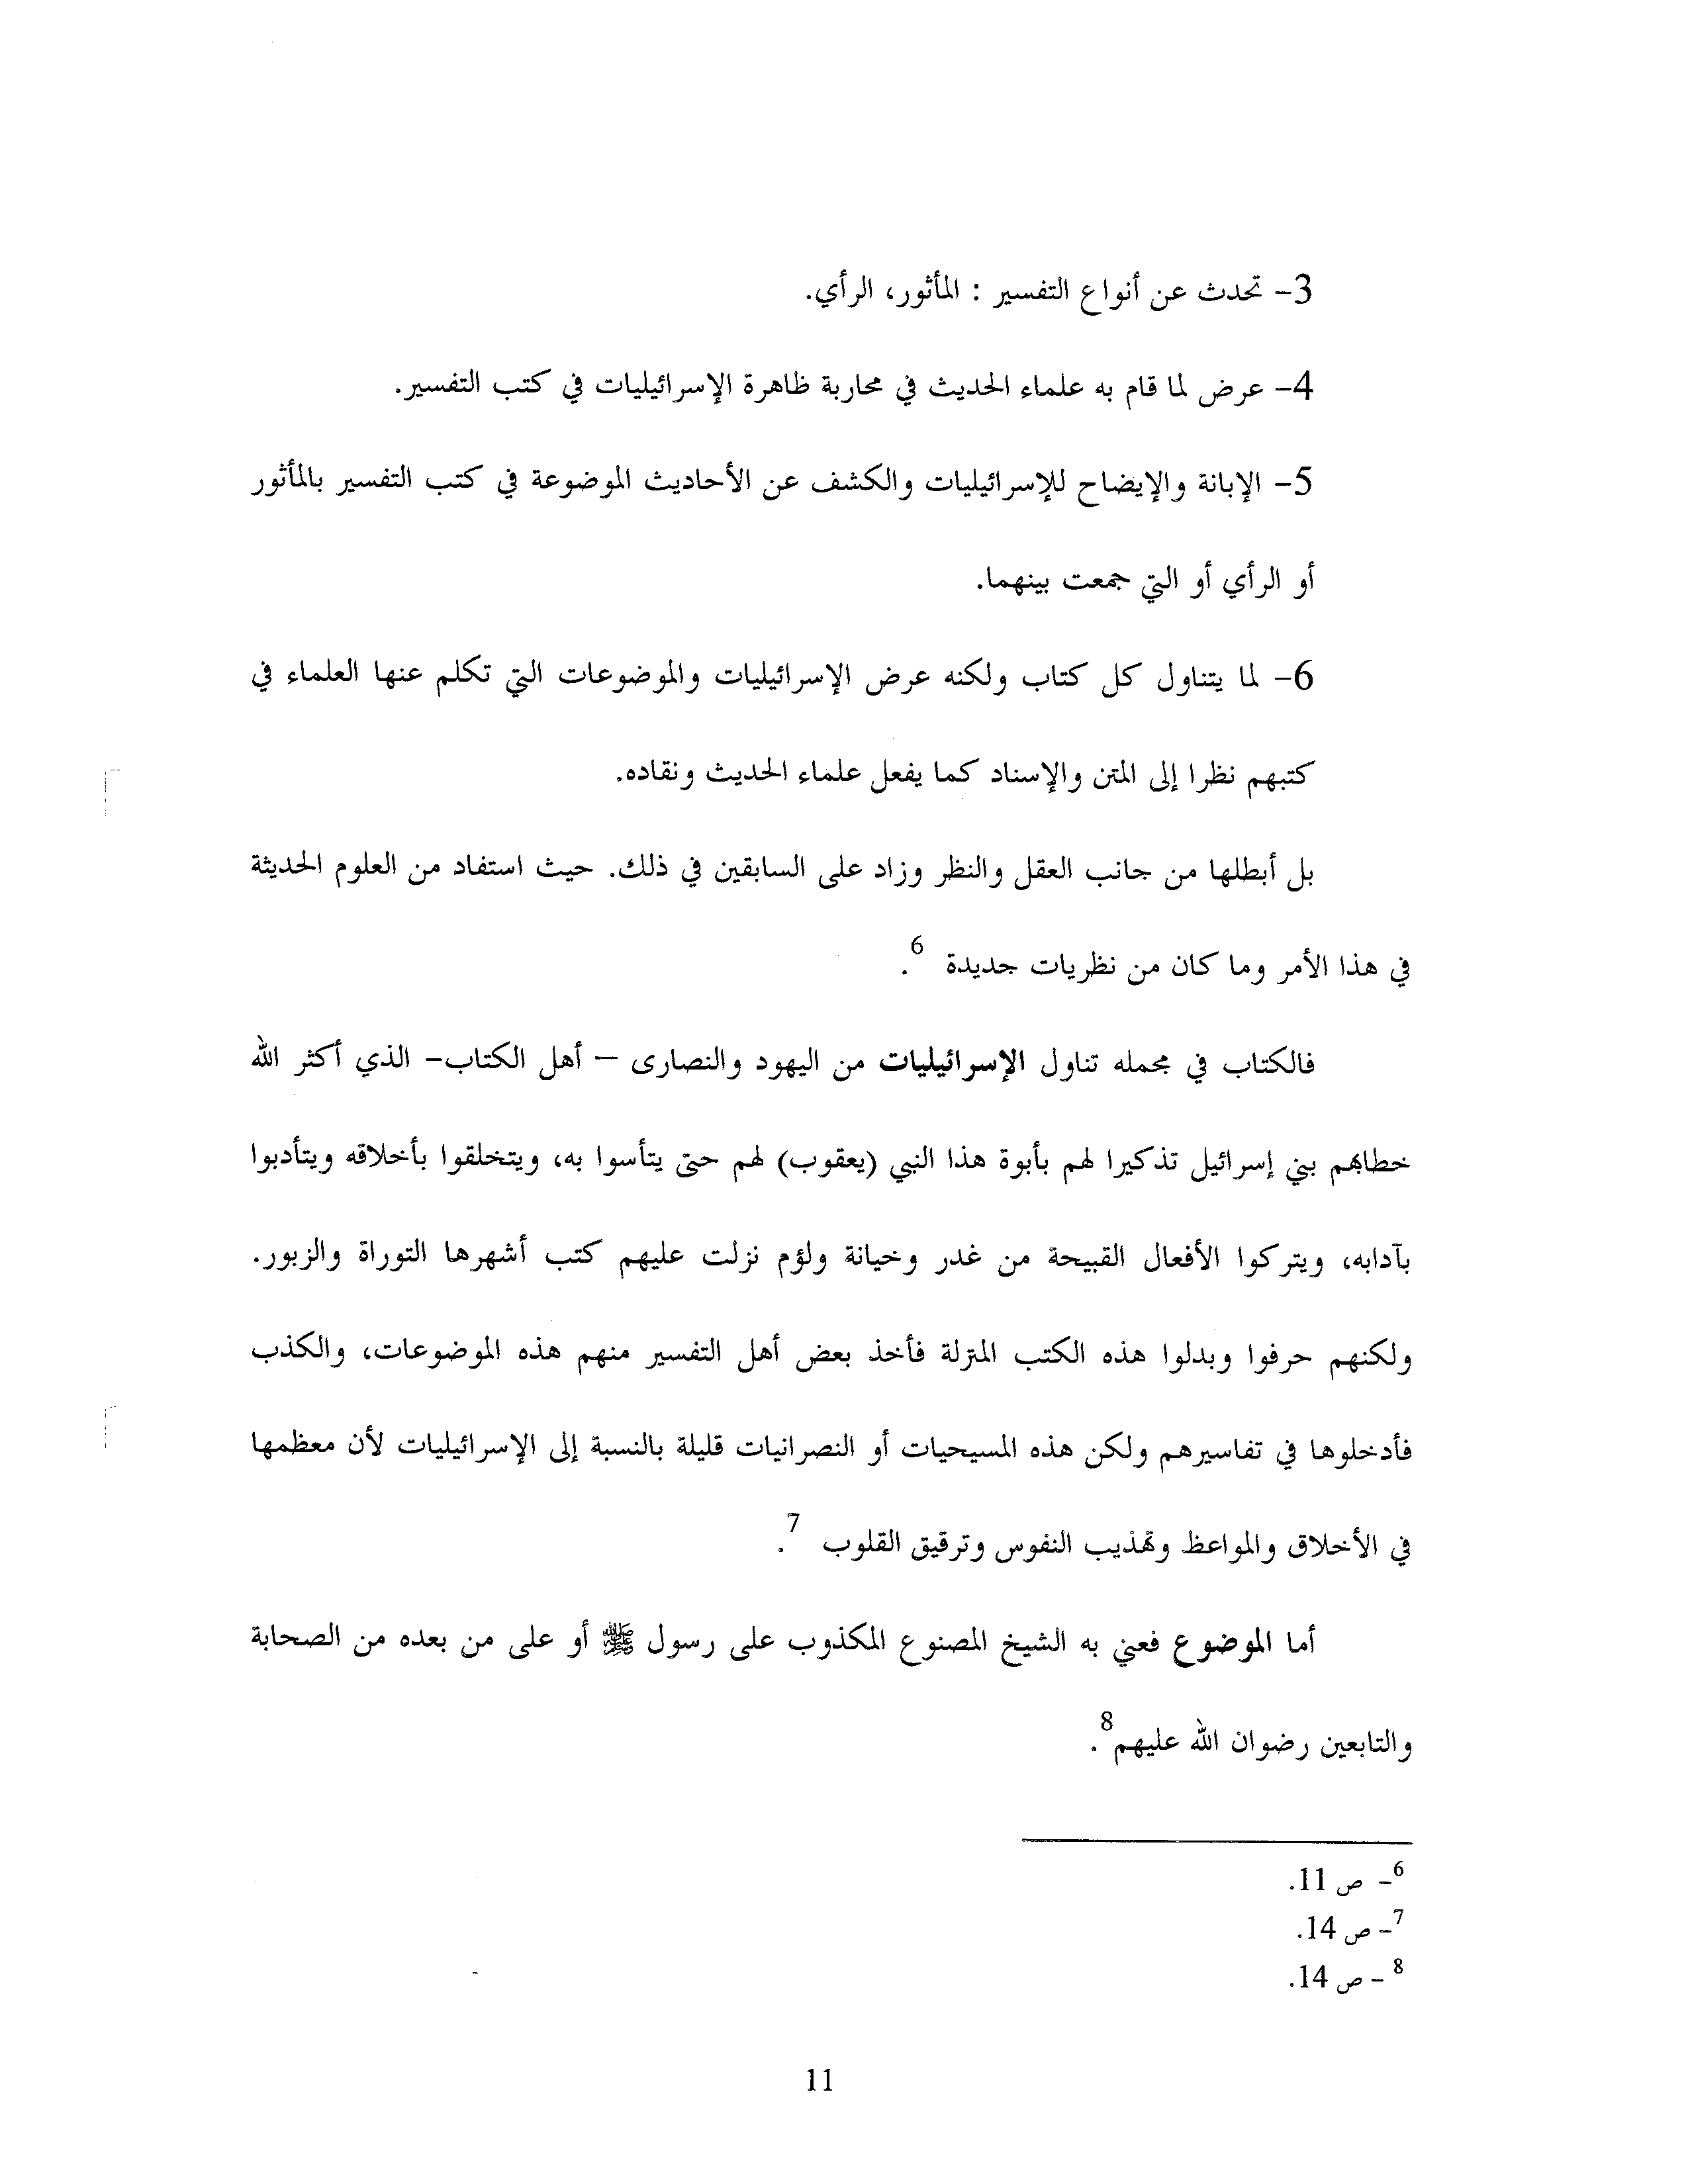 3- تحدث عن أنواع التفسير : المأثور، الرأي.
4- عرض لما قام به علماء الحديث في محاربة ظاهرة الإسرائيليات في كتب التفسير.
5- الإبانة والإيضاح للإسرائيليات والكشف عن الأحاديث الموضوعة في كتب التفسير بالمأثور
أو الرأي أو التي جمعت بينهما.
6- لما يتناول كل كتاب ولكنه عرض الإسرائيليات والموضوعات التي تكلم عنها العلماء في
كتبهم نظرا إلى المتن والإسناد كما يفعل علماء الحديث ونقاده.
بل أبطلها من جانب العقل والنظر وزاد على السابقين في ذلك. حيث استفاد من العلوم الحديثة
في هذا الأمر وما كان من نظريات جديدة 6.
فالكتاب في مجمله تناول الإسرائيليات من اليهود والنصارى – أهل الكتاب- الذي أكثر الله
خطابهم بني إسرائيل تذكيرا لهم بأبوة هذا النبي (يعقوب) لهم حتى يتأسوا به، ويتخلقوا بأخلاقه ويتأدبوا
بآدابه، ويتركوا الأفعال القبيحة من غدر وخيانة ولؤم نزلت عليهم كتب أشهرها التوراة والزبور.
ولكنهم حرفوا وبدلوا هذه الكتب المنزلة فأخذ بعض أهل التفسير منهم هذه الموضوعات، والكذب
فأدخلوها في تفاسيرهم ولكن هذه المسيحيات أو النصرانيات قليلة بالنسبة إلى الإسرائيليات لأن معظمها
في الأخلاق والمواعظ وتهذيب النفوس وترقيق القلوب 7.
أما الموضوع فعني به الشيخ المصنوع المكذوب على رسول ﷺ أو على من بعده من الصحابة
والتابعين رضوان الله عليهم8.
6- ص 11.
7- ص 14.
8 - ص 14.
11